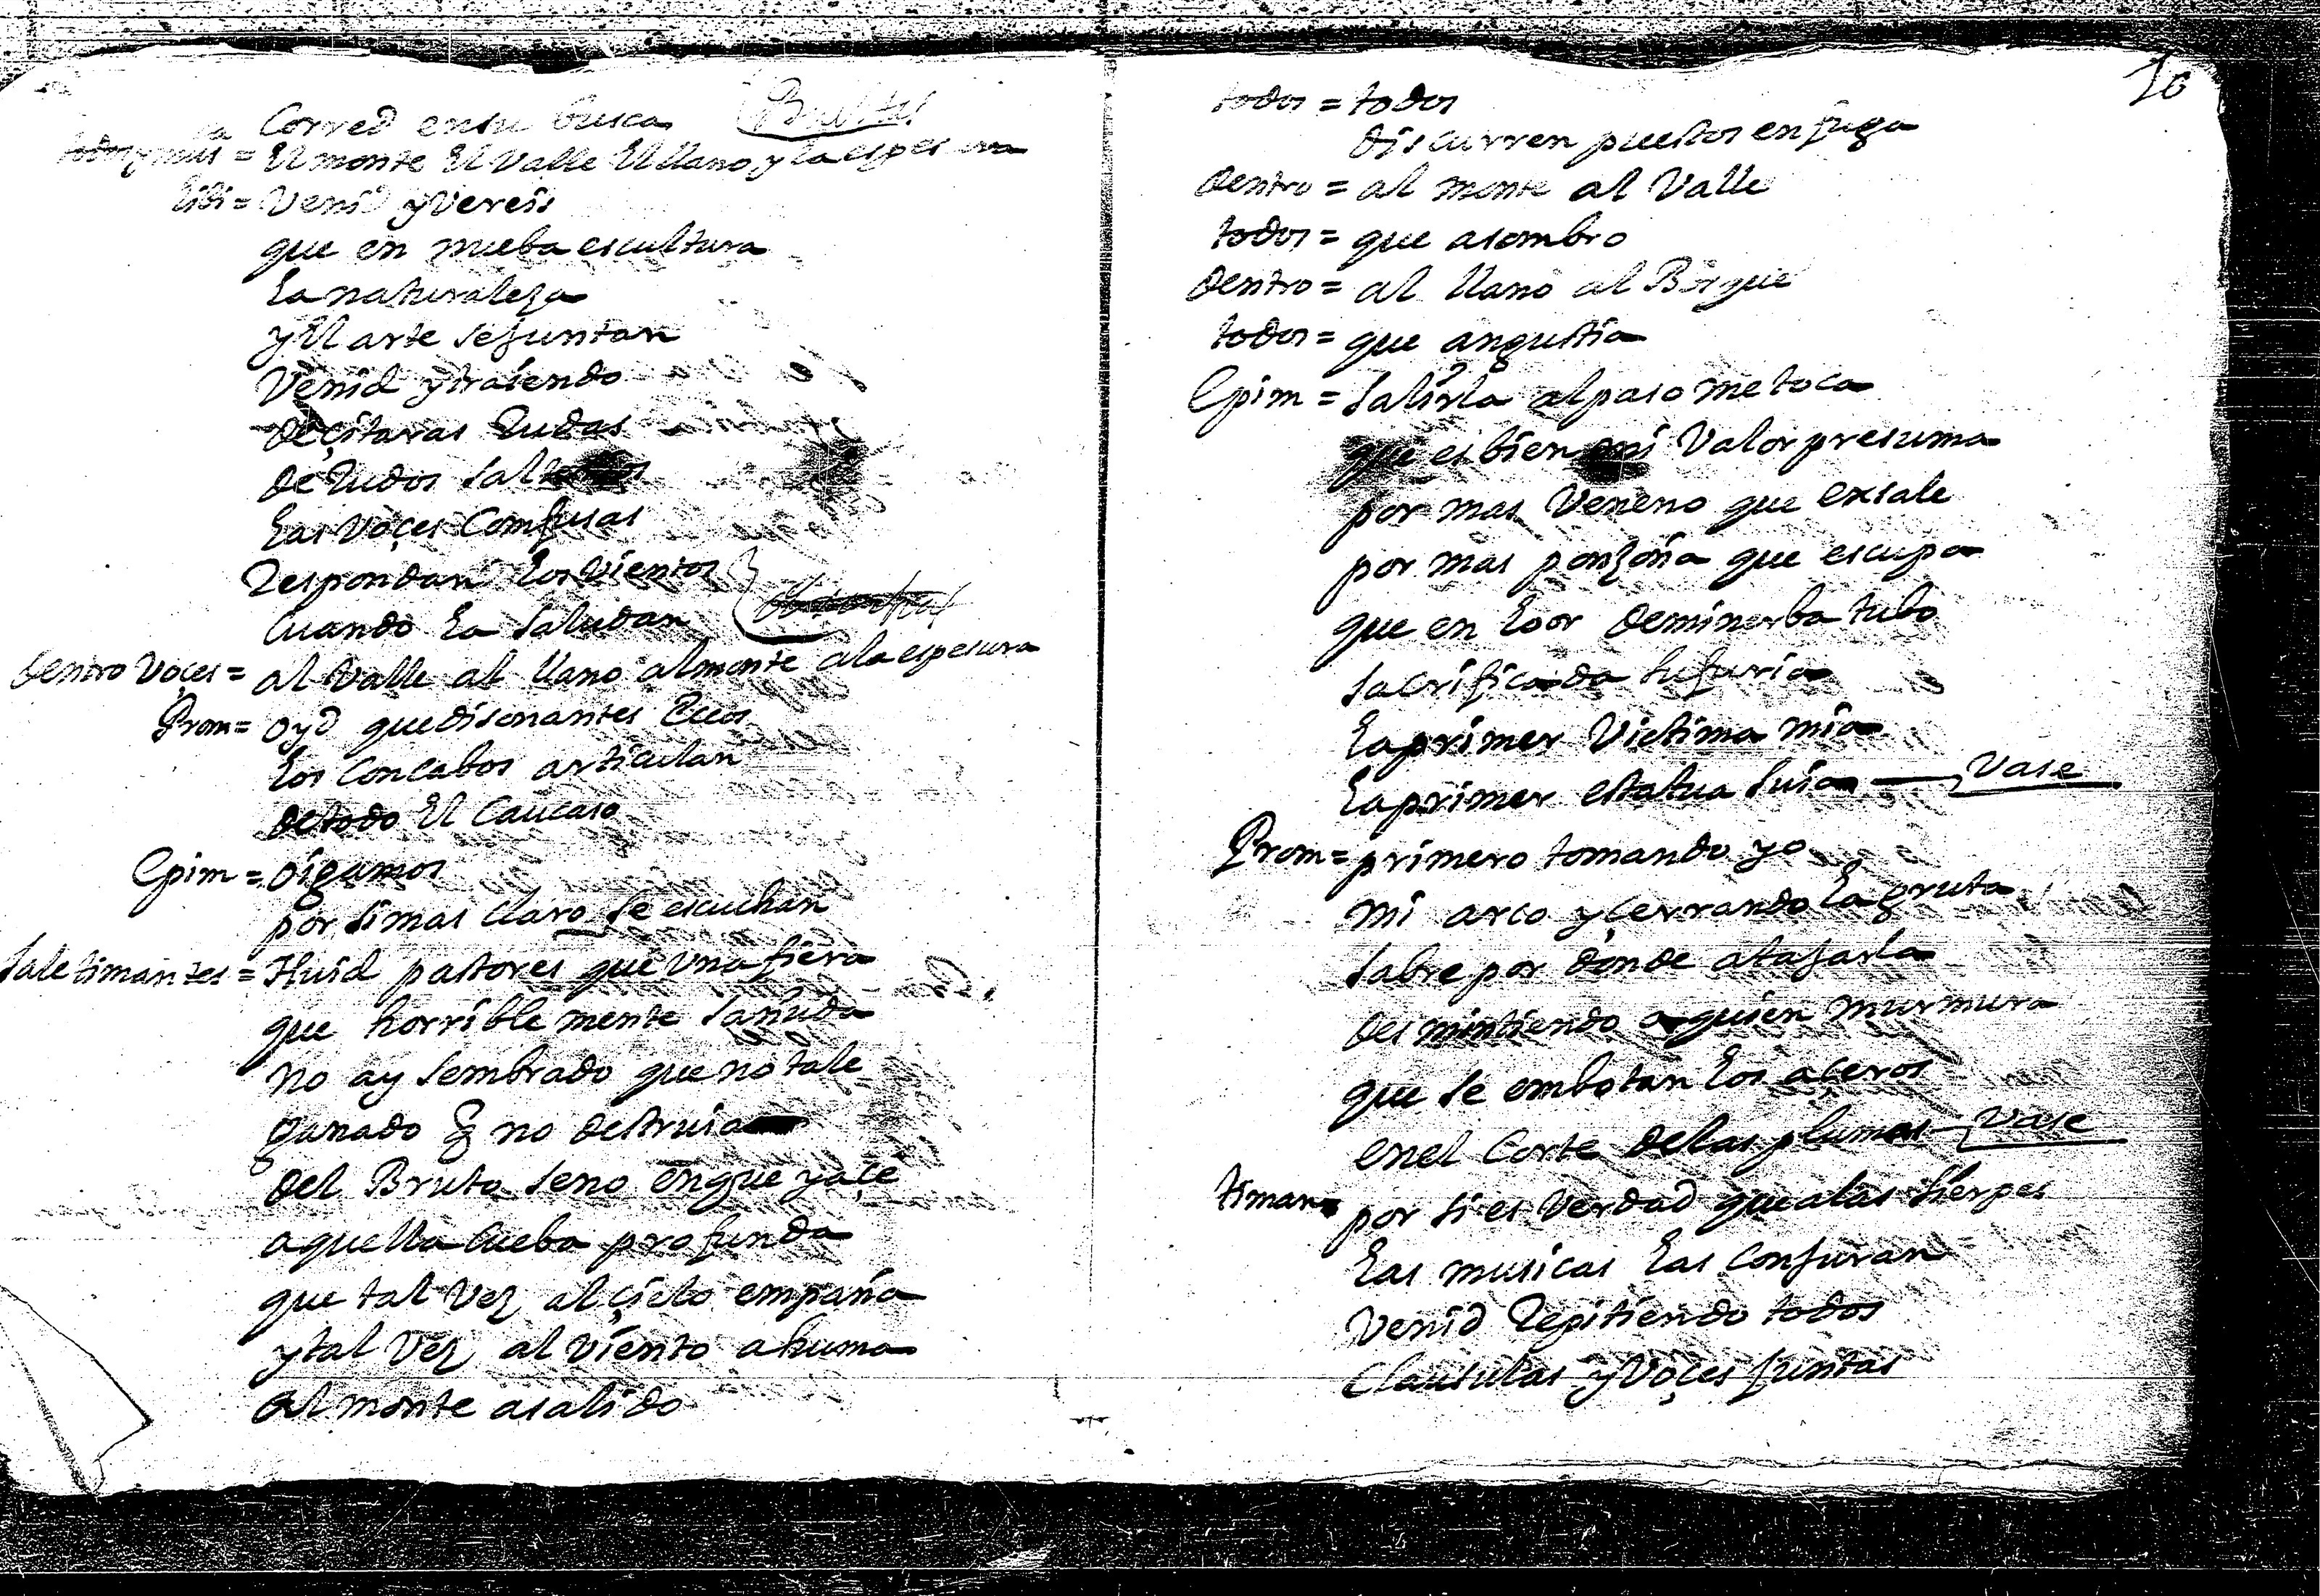 Corred en su busca
todos y mus = El monte El Valle El llano y la espesura
libi = Venid y Vereis
que en nueba escultura
La naturaleza
y El arte se juntan
Venid y traiendo
de çitaras Rudas
de Rudos salterios
Las Voçes Confusas
Respondan Los Vientos
Cuando La saludan
dentro Voçes = al Valle al llano al monte a la espesura
Prom = oyd que disonantes Ecos
Los Concabos articulan
de todo El Caucaso
Epim = oigamos
por si mas claro se escuchan
sale timantes = Huid pastores que una fiera
que horrible mente sañuda
no ay sembrado que no tale
ganado q no destruia
del Bruto seno en que yaçe
aquella Cueba profunda
que tal Vez al çielo empaña
y tal Vez al Viento ahuma
al monte a salido
10
todos = todos
discurren puestos en fuga
dentro = al monte al Valle
todos = que asombro
dentro = al llano al Bosque
todos = que angustia
Epim = salirla al paso me toca
que es bien mi Valor presuma
por mas Veneno que exsale
por mas ponzoña que escupa
que en Loor de minerba tubo
sacrificada su furia
La primer Victima mia
La primer estatua suia Vase
Prom = primero tomando yo
mi arco y çerrando la gruta
sabre por donde atajarla
des mintiendo a quien murmura
que se embotan Los açeros
en el Corte de las plumas Vase
timan = por si es Verdad que a las sierpes
Las musicas Las conjuran
Venid Repitiendo todos
Clausulas y Voçes juntas